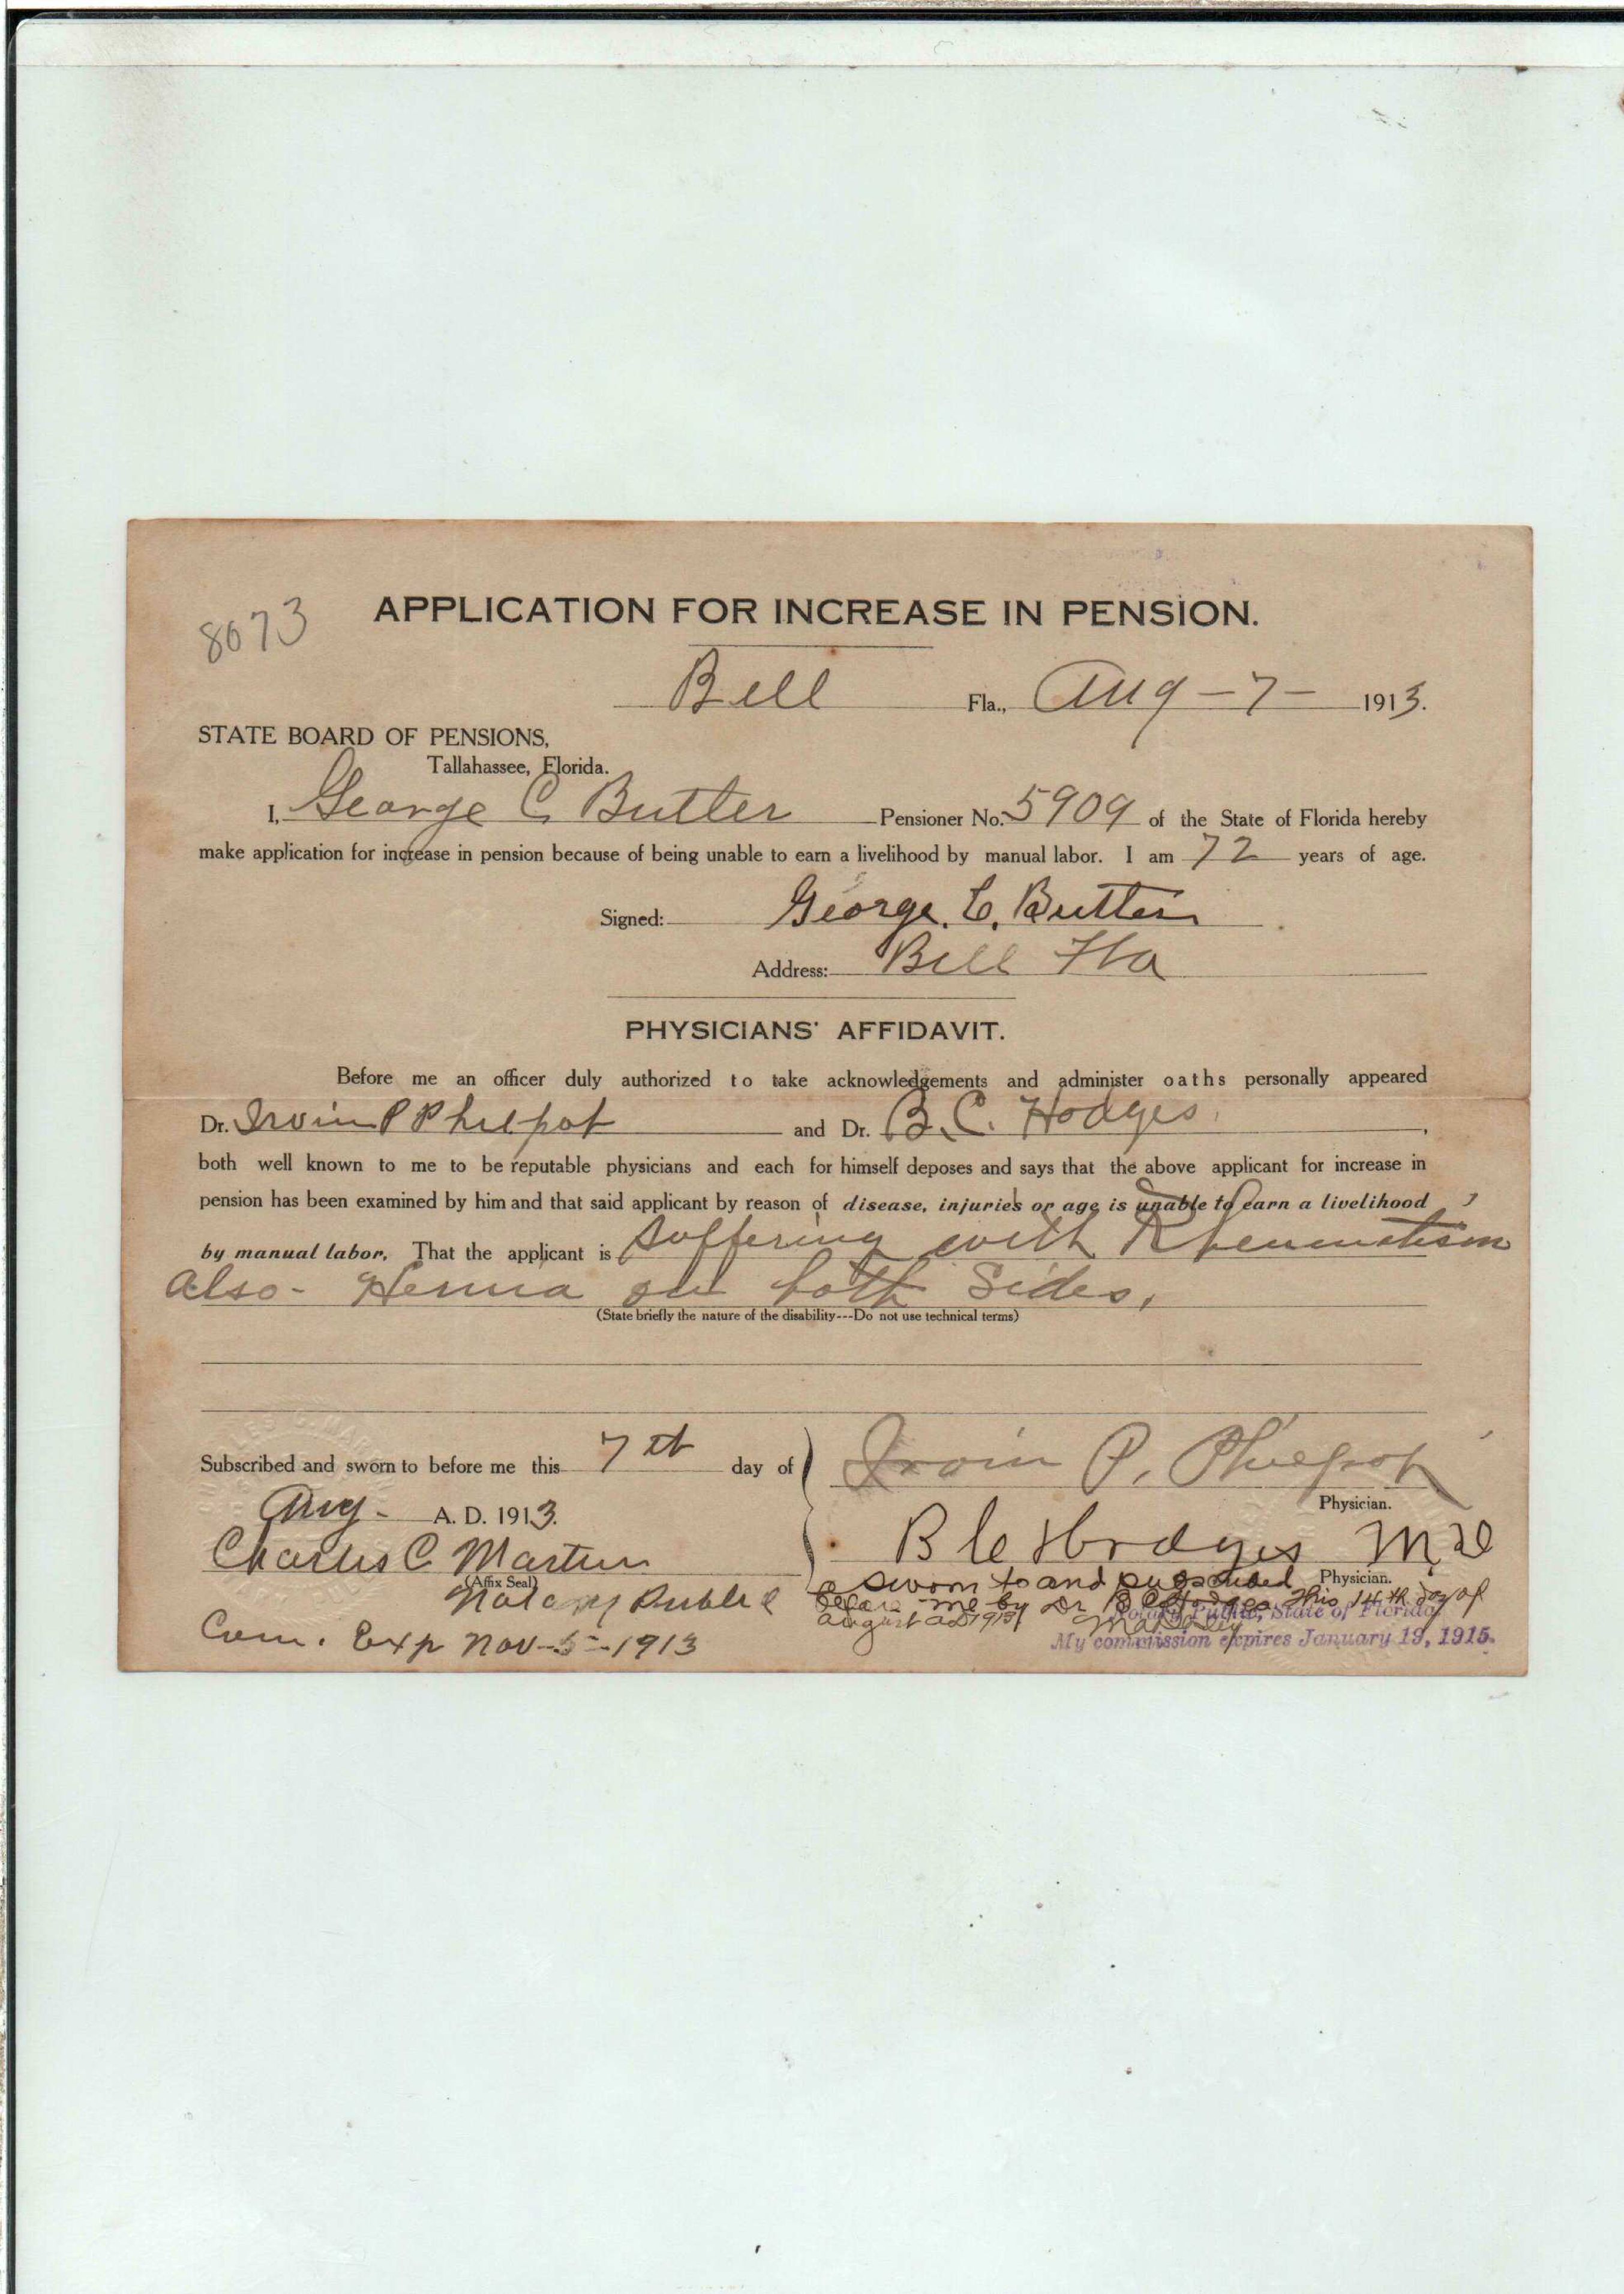 8073
APPLICATION FOR INCREASE IN PENSION.
Bell Fla., Aug - 7 - 1913.
STATE BOARD OF PENSIONS,
Tallahassee, Florida.
I, George C. Butler Pensioner No. 5909 of the State of Florida hereby
make application for increase in pension because of being unable to earn a livelihood by manual labor. I am 72 years of age.
Signed: George. C. Butler
Address: Bell Fla
PHYSICIANS' AFFIDAVIT.
Before me an officer duly authorized to take acknowledgements and administer oaths personally appeared
Dr. Irvin P Philpot and Dr. B. C. Hodges,
both well known to me to be reputable physicians and each for himself deposes and says that the above applicant for increase in
pension has been examined by him and that said applicant by reason of disease, injuries or age is unable to earn a livelihood
by manual labor. That the applicant is Suffering with Rheumatism
also - Hernia on both Sides.
(State briefly the nature of the disability---Do not use technical terms)
Subscribed and sworn to before me this 7th day of
Aug - A. D. 1913.
Charles C. Martin
(Affix Seal)
Notary Public
Com. Exp Nov-5-1913
Irvin P. Philpot
Physician.
B C Hodges MD
Physician.
sworn to and subscribed
before me by Dr B C Hodges this 14th day of
august ad 1913
Notary Public, State of Florida
My commission expires January 19, 1915.